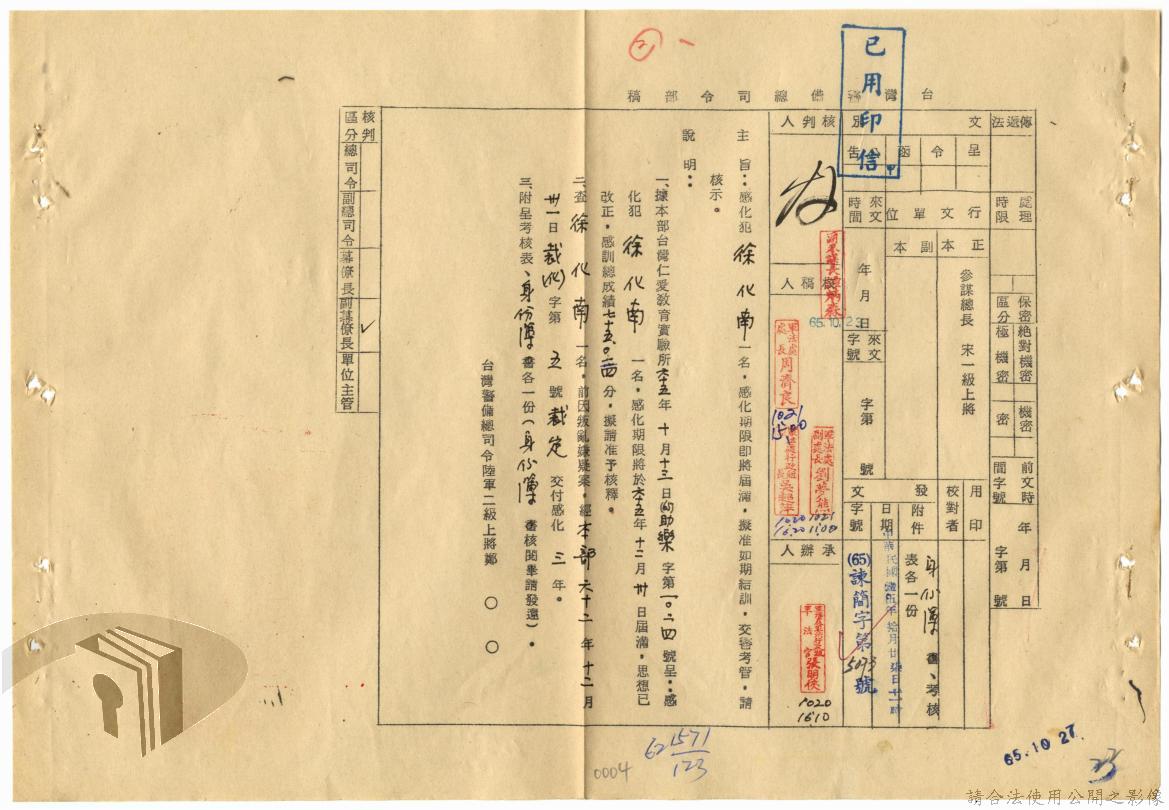 已用印信
甲
台灣警備總司令部稿
傳遞法
文別
呈
令
函
公告
核判人
處理時限
行文單位
來文時間
正本
副本
參謀總長 宋一級上將
年月日
來文字號
字第 號
核稿人
65.10.23
軍法處處長周濟良
10 21
15.00
軍法處副處長劉夢熊
10 21
11.00
10 20
16.20
保密區分
絕對機密
極機密
機密
密
前文時間字號
年月日
字第 號
用印
校對者
發文
附件
日期
字號
身份簿書、考核表各一份
中華民國陸伍年拾月廿
(65)諫簡字第5093號
承辦人
軍法官張明俠
10 20
16.10
主 旨：感化犯 徐化南 一名，感化期限即將屆滿，擬准如期結訓，交警考管，請
核示。
說 明：
一、據本部台灣仁愛教育實驗所六十五年 十 月 十三 日(65)助樂 字第一〇二四 號呈：感
化犯 徐化南 一名，感化期限將於六十五年 十二 月 卅 日屆滿，思想已
改正，感訓總成績七十五.〇二四分，擬請准予核釋。
二、查 徐化南 一名，前因叛亂嫌疑案，經 本部 六十二 年 十二 月
卅一日 裁(化) 字第 五 號 裁定 交付感化 三 年。
三、附呈考核表、身份簿 書各一份（身份簿 書核閱畢請發還）。
台灣警備總司令陸軍二級上將鄭 〇 〇
核判區分
總司令
副總司令
幕僚長
副幕僚長
單位主管
✓
0004
621571
123
65.10 27.
請合法使用公開之影像